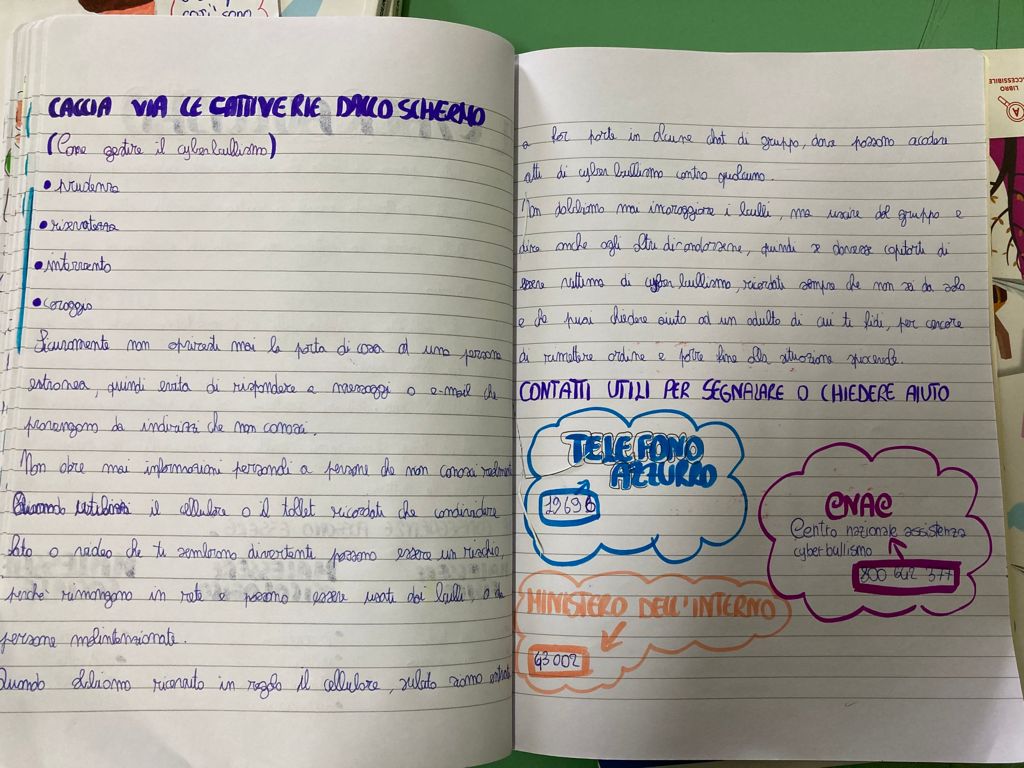 CACCIA VIA LE CATTIVERIE DALLO SCHERMO
(Come gestire il cyberbullismo)
• prudenza
• riservatezza
• intervento
• coraggio
Sicuramente non apriresti mai la porta di casa ad una persona
estranea, quindi evita di rispondere a messaggi o e-mail che
provengono da indirizzi che non conosci.
Non dare mai informazioni personali a persone che non conosci realmente
Quando utilizzi il cellulare o il tablet ricordati che condividere
foto o video che ti sembrano divertente possono essere un rischio,
perchè rimangono in rete e possono essere usate dai bulli, o da
persone malintenzionate.
Quando abbiamo ricevuto in regalo il cellulare, subito siamo entrati
a far parte in alcune chat di gruppo, dove possono accadere
atti di cyber bullismo contro qualcuno.
Non dobbiamo mai incoraggiare i bulli, ma uscire dal gruppo e
dire anche agli altri di andarsene, quindi se dovesse capitarti di
essere vittima di cyber bullismo, ricordati sempre che non sei da solo
e che puoi chiedere aiuto ad un adulto di cui ti fidi, per cercare
di rimettere ordine e porre fine alla situazione spiacevole.
CONTATTI UTILI PER SEGNALARE O CHIEDERE AIUTO
TELEFONO
AZZURRO
19696
CNAC
Centro nazionale assistenza
cyberbullismo
800 642 377
MINISTERO DELL'INTERNO
43002
LIBRO
ACCESSIBILE
A
così sono